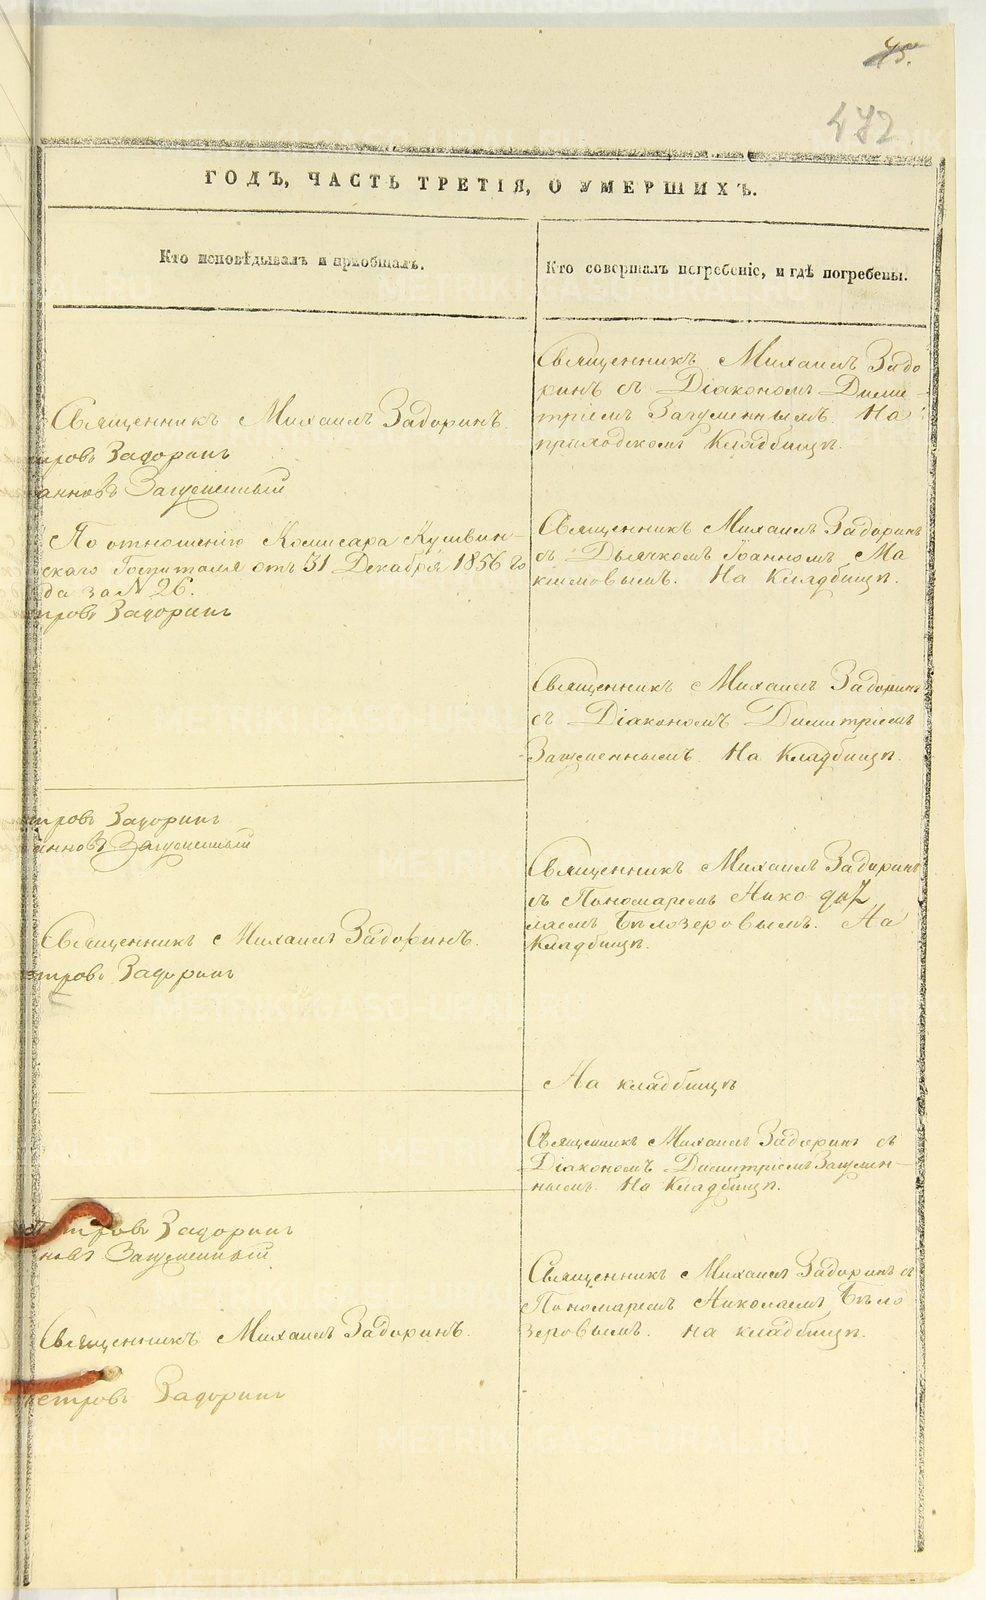 45.
472.
ГОДЪ, ЧАСТЬ ТРЕТІЯ, О УМЕРШИХЪ.
Кто исповѣдывалъ и пріобщалъ.
Кто совершалъ погребеніе, и гдѣ погребены.
Священникъ Михаилъ Задоринъ.
тровъ Задоринъ
анновъ Загуменный
По отношенію Комисара Кушвин-
скаго Госпиталя отъ 31 Декабря 1856 го
да за N 26.
тровъ Задоринъ
тровъ Задоринъ
анновъ Загуменный
Священникъ Михаилъ Задоринъ.
етровъ Задоринъ
Петровъ Задоринъ
новъ Загуменный
Священникъ Михаилъ Задоринъ.
Петровъ Задоринъ
Священникъ Михаилъ Задо
ринъ съ Діакономъ Дими-
тріемъ Загуменнымъ. На
приходскомъ Кладбищѣ.
Священникъ Михаилъ Задоринъ
съ Дьячкомъ Іоанномъ Ма
ксимовымъ. На Кладбищѣ.
Священникъ Михаилъ Задоринъ
съ Діакономъ Димитріемъ
Загуменнымъ. На Кладбищѣ.
Священникъ Михаилъ Задоринъ
съ Пономаремъ Нико
лаемъ Бѣлозеровымъ. На
Кладбищѣ.
На кладбищѣ
Священникъ Михаилъ Задоринъ съ
Діакономъ Димитріемъ Загумен-
нымъ. На Кладбищѣ.
Священникъ Михаилъ Задоринъ съ
Пономаремъ Николаемъ Бѣло
зеровымъ. на кладбищѣ.
METRIKI.GASO-URAL.RU